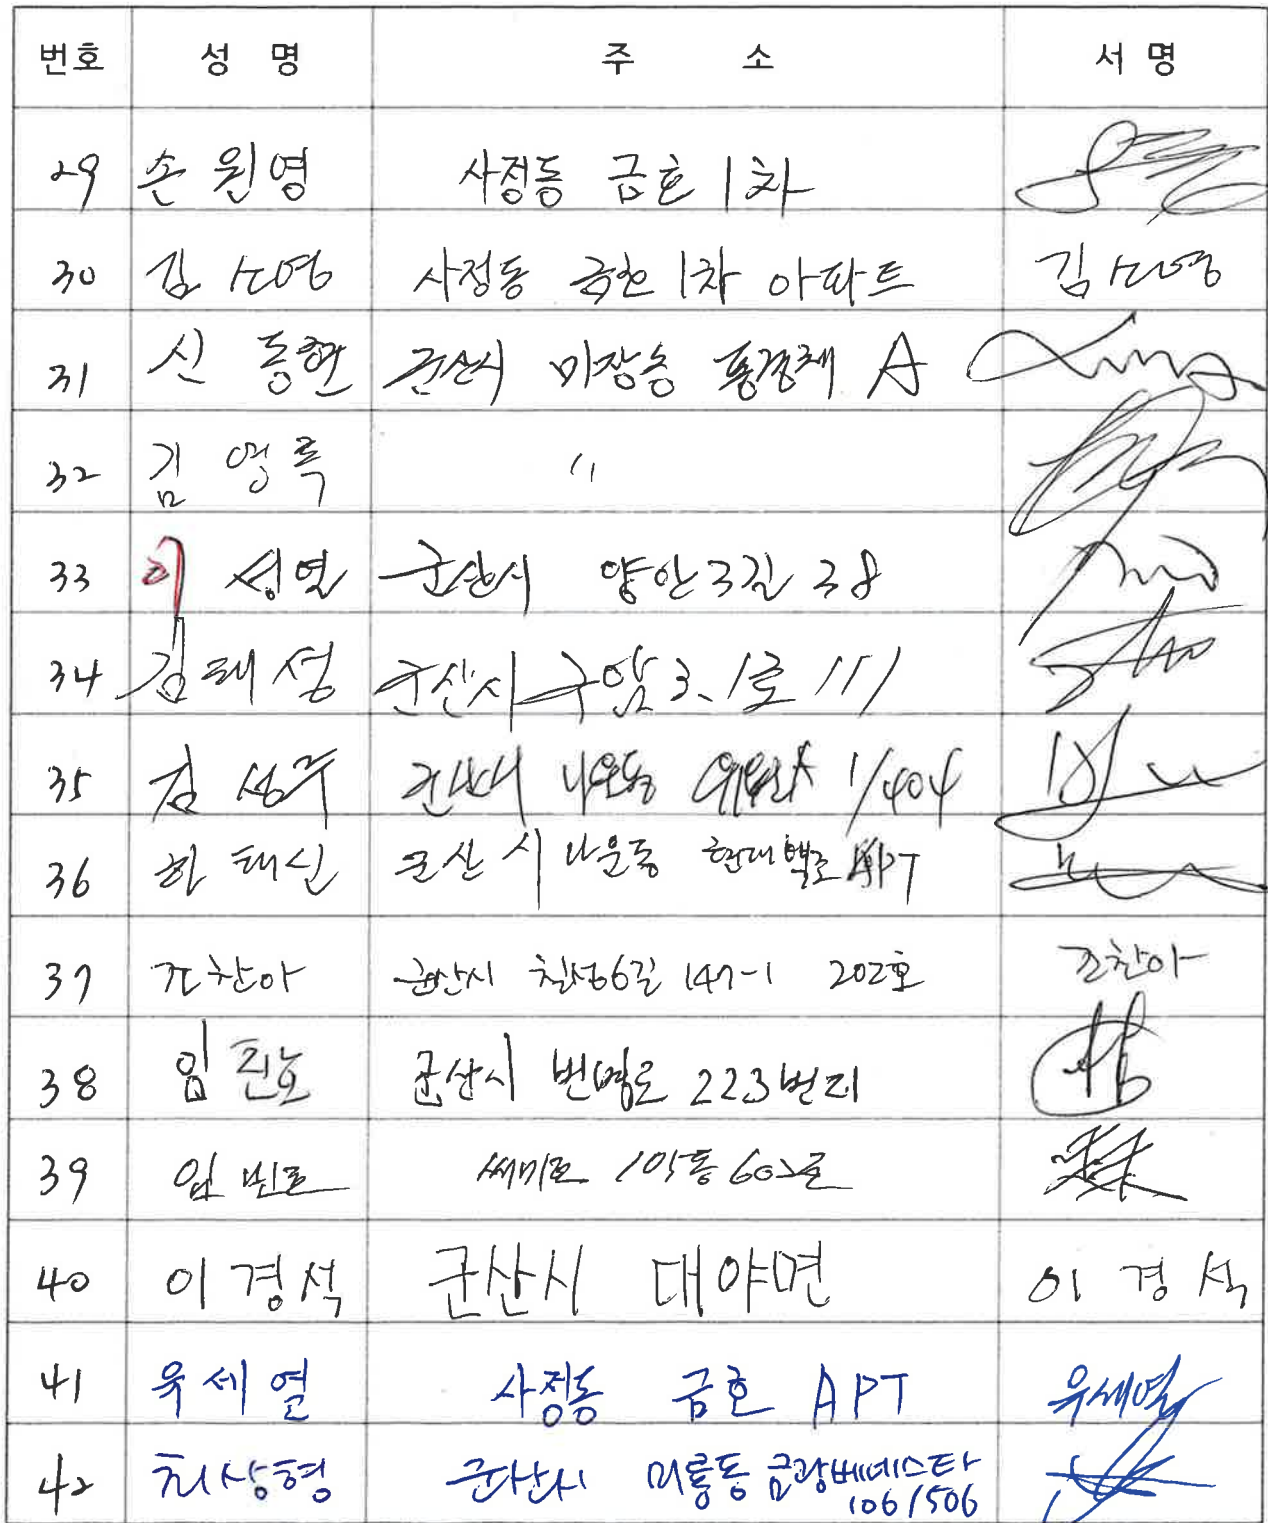 번호 성 명 주 소 서 명
29 손원영 사정동 금호 1차
30 김선영 사정동 금호 1차 아파트 김선영
31 신동현 군산시 미장동 A
32 김영록 〃
33 이성열 군산시 양안3길 38
34 김태성 군산시 구암 3.1로 111
35 김성주 군산시 나운동 1/404
36 하태신 군산시 나운동 현대백로 APT
37 조찬아 군산시 칠성6길 147-1 202호 조찬아
38 임진호 군산시 번영로 223번지
39 임빈 105동 602호
40 이경석 군산시 대야면 이경석
41 유세열 사정동 금호 APT 유세열
42 최상형 군산시 미룡동 금광베네스타
106/506